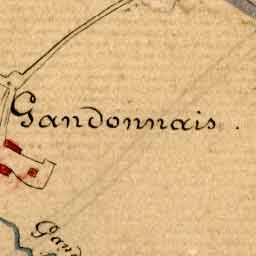 Gandonnais.
Gand